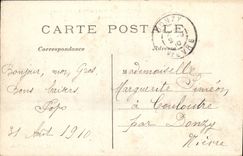 CARTE POSTALE
Correspondance
Adresse
DONZY
NIÈVRE
Bonjour, mon Gros.
Bons baisers
Pop
31 Août 1910.
Mademoiselle
Marguerite Siméon
à Couloutre
par Donzy
Nièvre